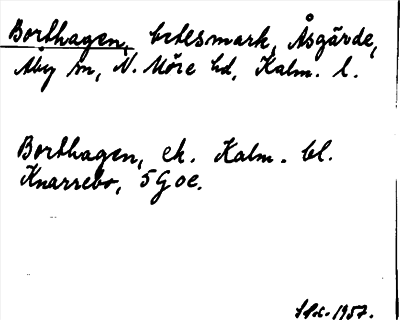 Borthagen, betesmark, Åsgärde,
Åby sn, N. Möre hd, Kalm. l.
Borthagen, ek. Kalm. bl.
Knarrebo, 5 G oe.
1957.